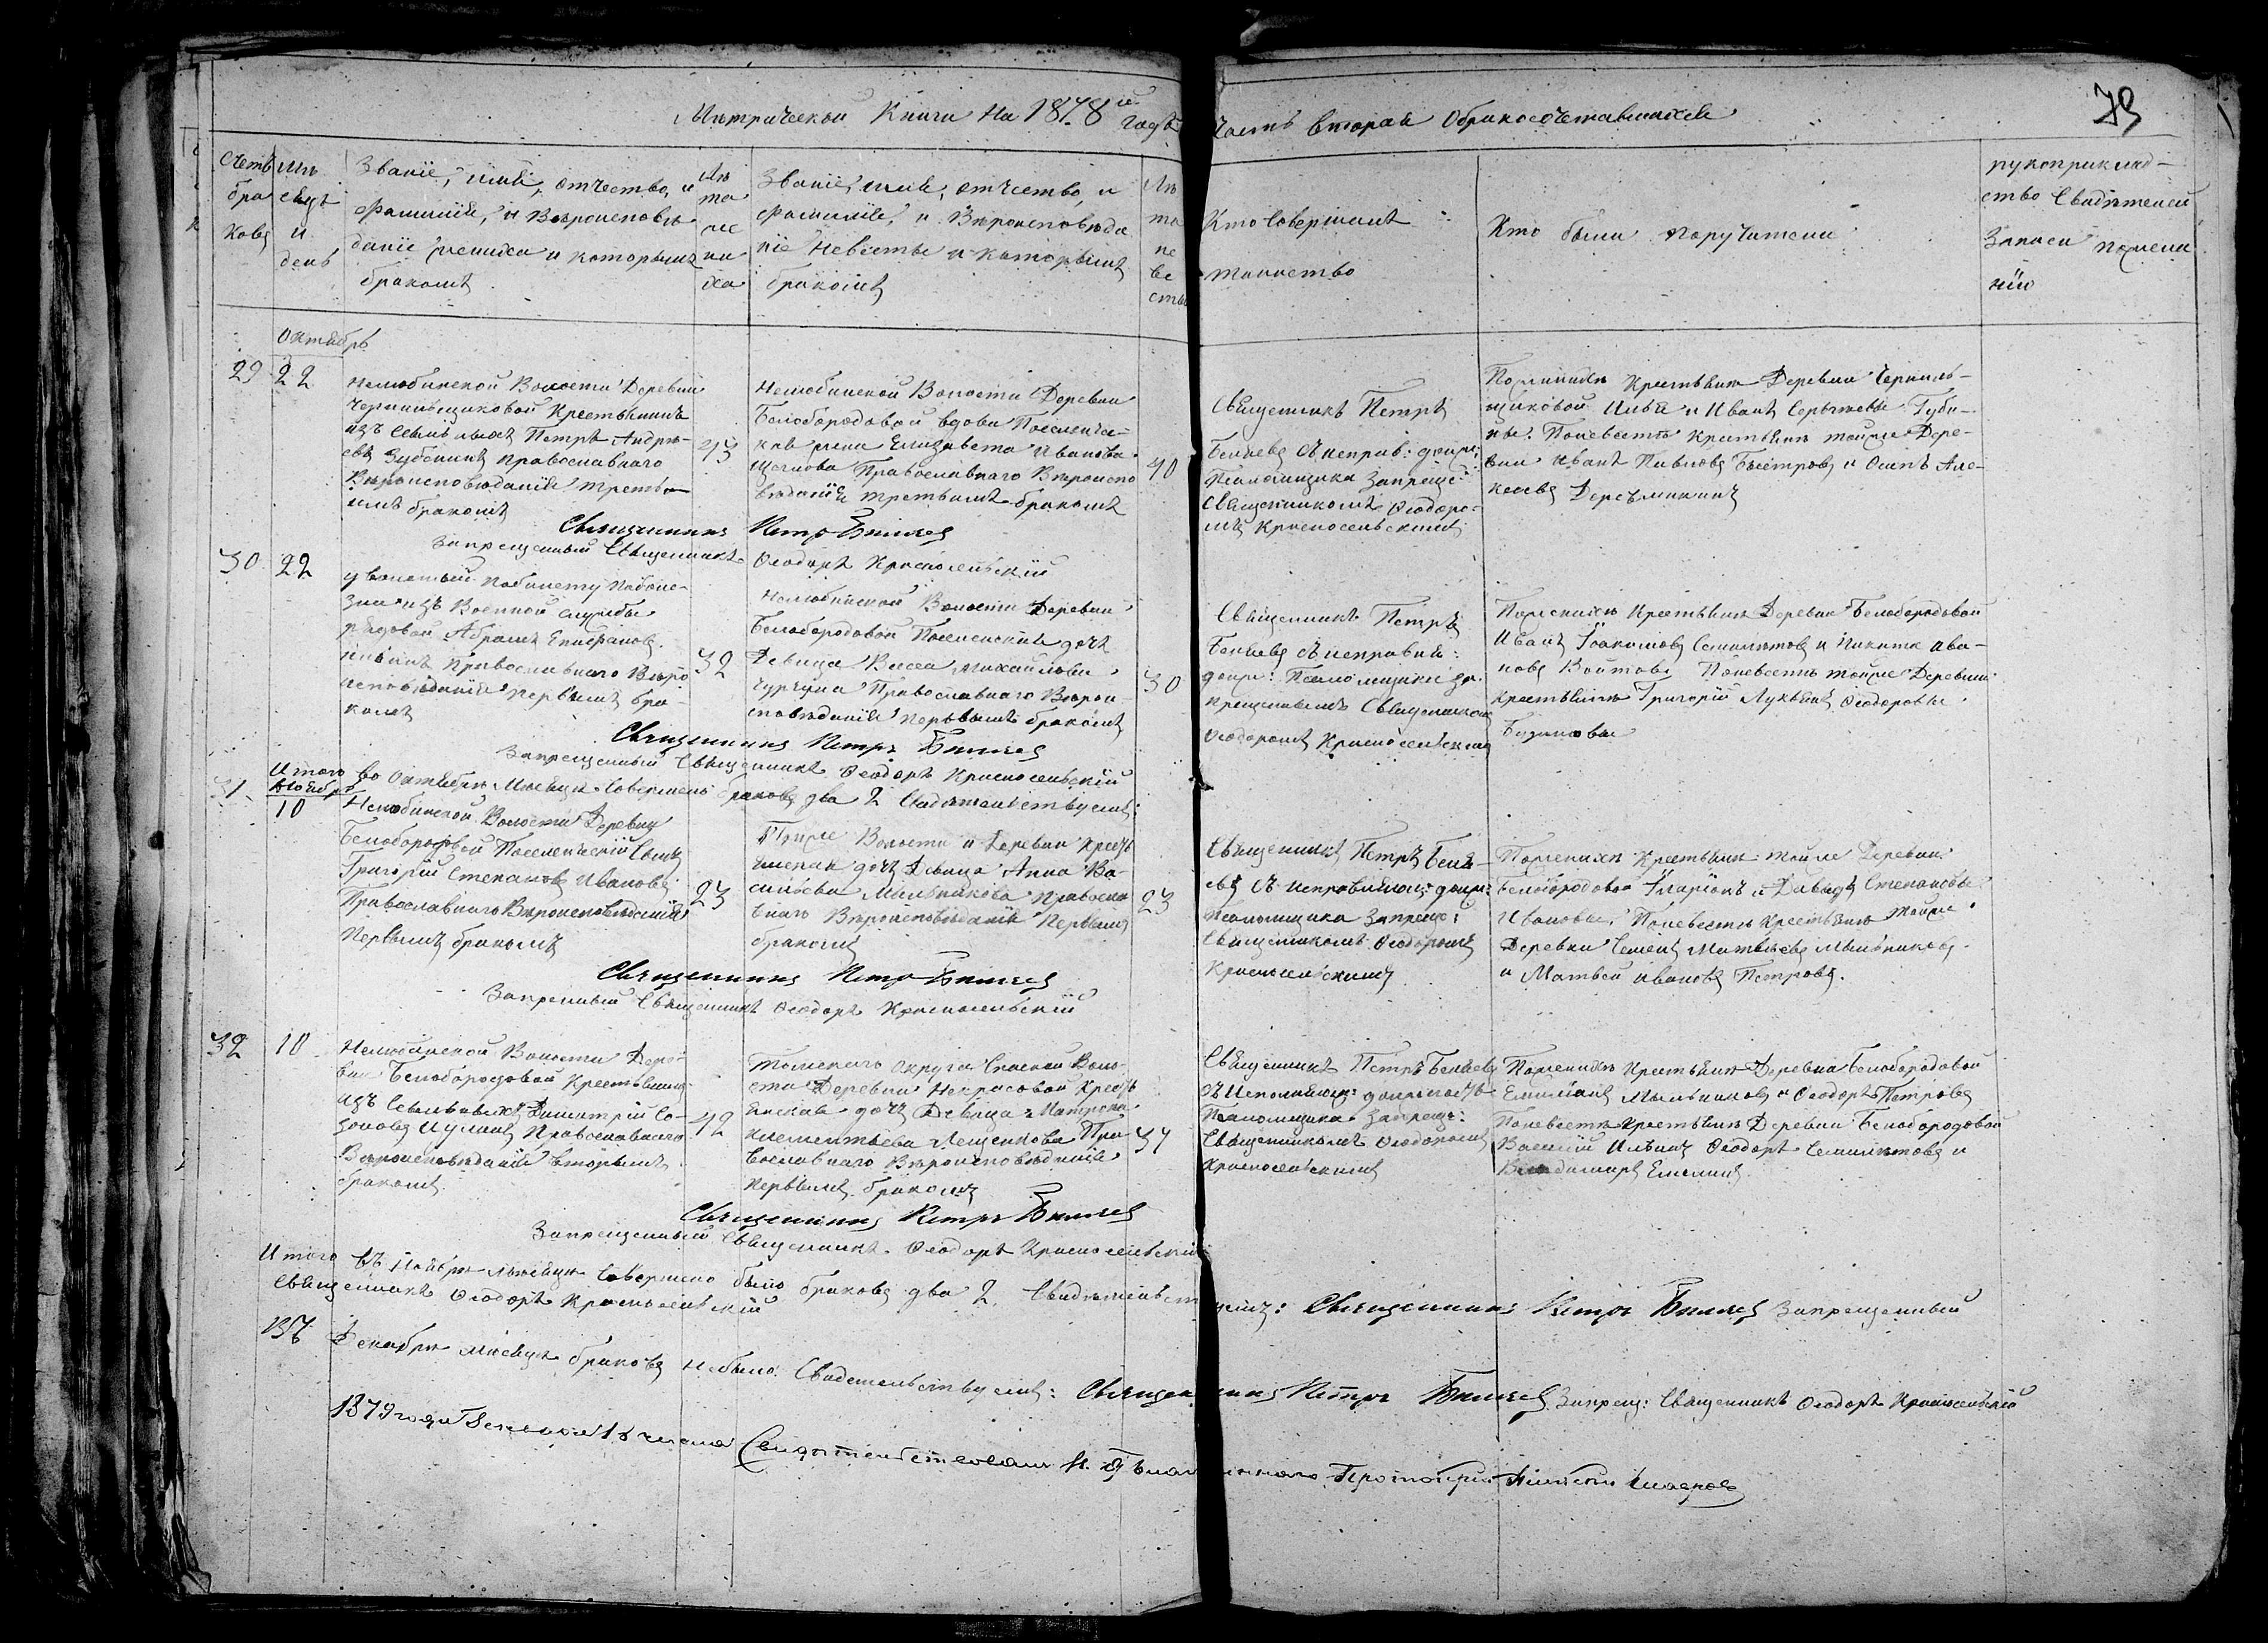 Метрической Книги на 1878й годъ Часть вторая О бракосочетавшихся
73
Счетъ
бра
ковъ
Мѣ
сяцъ
и
день
Званіе, имя, отчество, и
фамилія, и Вѣроисповѣ
даніе жениха и которымъ
бракомъ
Лѣ
та
же
ни
ха
Званіе, имя, отчество, и
фамилія, и Вѣроисповѣда
ніе Невѣсты и которымъ
бракомъ
Лѣ
та
не
вѣ
сты
Кто Совершалъ
таинство
Кто были поручители
рукоприклад-
ство Свидѣтелей
Записи по желa
нію
Октябрь
29
22
Нелюбинской Волости Деревни
Чернильщиковой Крестьянинъ
изъ Сыльныхъ Петръ Андре-
евъ Зубенинъ Православнаго
Вѣроисповѣданія третьи-
имъ бракомъ
43
Нелюбинской Волости Деревни
Белобородовой вдова Поселенче-
ская жена Елизавета Иванова
Православнаго Вѣроиспо
вѣданія третьимъ бракомъ
40
Священникъ Петръ
Беляевъ съ исправ: долж:
Псаломщика Запреще:
Священникомъ Ѳеодоро-
мъ Красносельскимъ
По женихѣ Крестьяне Деревни Черниль-
щиковой Илья и Иванъ Сергѣевы Губи-
ны. По невѣстѣ крестьяне тойже Дере-
вни Иванъ Павловъ Быстровъ и Осипъ Але-
ксѣевъ
Священникъ Петръ Беляевъ
Запрещенный Священникъ Ѳеодоръ Красносельскій
30
22
уволенный по билету по болѣ-
зни изъ Военной службы
рядовой Абрамъ Епифановъ
Православнаго Вѣро
исповѣданія первымъ бра-
комъ
32
Нелюбинской Волости Деревни
Белобородовой Поселенская дочь
Девица Васса Михайлова
Православнаго Вѣрои-
сповѣданія первымъ бракомъ
30
Священникъ Петръ
Беляевъ съ исправля:
долж: Псаломщика за-
прещеннымъ Священникомъ
Ѳеодоромъ Красносельскимъ
По женихѣ Крестьяне Деревни Белобородовой
Иванъ Іоакимовъ Семилѣтовъ и Никита Ива-
новъ Войтовъ. По невѣстѣ тойже Деревни
крестьяне Григорій Лукьянъ Ѳеодоровы
Бузиновы
Священникъ Петръ Беляевъ
Запрещенный Священникъ Ѳеодоръ Красносельскій
Итого во Октябрѣ Мѣсяцѣ Совершено браковъ два 2 Свидѣтельствуемъ:
31
Ноябрь
10
Нелюбинской Волости Деревни
Белобородовой Поселенческій Сынъ
Григорій Степановъ Ивановъ
Православнаго Вѣроисповѣданія
Первымъ бракомъ
23
Тойже Волости и Деревни Кресть
янская дочь Девица Анна Ва-
сильева Мыльникова Правосла
внаго Вѣроисповѣданія Первымъ
бракомъ
23
Священникъ Петръ Беля-
евъ съ исправляющ: долж:
Псаломщика Запреще:
Священникомъ Ѳеодоромъ
Красносельскимъ
По женихѣ Крестьяне тойже Деревни
Белобородовой Иларіонъ и Давидъ Степановы
Ивановы, По невѣстѣ Крестьяне тойже
Деревни Семенъ Матвѣевъ Мыльниковъ
и Матвей Ивановъ Петровъ.
Священникъ Петръ Беляевъ
Запрещенный Священникъ Ѳеодоръ Красносельскій
32
10
Нелюбинской Волости Дере-
вни Белобородовой Крестьянинъ
изъ Сыльныхъ Димитрій Со-
зоновъ Православнаго
Вѣроисповѣданія вторымъ
бракомъ
42
Томскаго Округа Спаской Воло-
сти Деревни Некрасовой Кресть
янская дочь Девица Матрона
Клементьева Лещенкова Пра-
вославнаго Вѣроисповѣданія
первымъ бракомъ
37
Священникъ Петръ Беляевъ
съ Исполняющ: должность
Псаломщика Запреще:
Священникомъ Ѳеодоромъ
Красносельскимъ
По женихѣ Крестьяне Деревни Белобородовой
Емилiанъ Мыльниковъ и Ѳеодоръ Петровъ
По невѣстѣ Крестьяне Деревни Белобородовой
Василій Ильинъ Ѳеодоръ Семилѣтовъ и
Владимиръ Емелинъ
Священникъ Петръ Беляевъ
Запрещенный Священникъ Ѳеодоръ Красносельскій
Итого въ Ноябрѣ мѣсяцѣ Совершено было браковъ два 2. Свидѣтельствуемъ: Священникъ Петръ Беляевъ Запрещенный
Священникъ Ѳеодоръ Красносельскій
Въ Декабрѣ мѣсяцѣ браковъ небыло. Свидетельствуемъ: Священникъ Петръ Беляевъ Запрещ: Священникъ Ѳеодоръ Красносельскій
1879 года Генваря 15 числа Свидѣтельствовалъ И. д. Благочиннаго Протоіерей